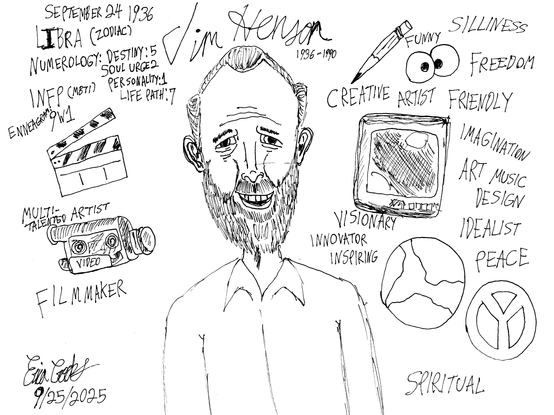 SEPTEMBER 24 1936
LIBRA (ZODIAC)
NUMEROLOGY: DESTINY: 5
SOUL URGE: 2
PERSONALITY: 1
LIFE PATH: 7
INFP (MBTI)
ENNEAGRAM: 9W1
MULTI-
TALENTED ARTIST
VIDEO
FILMMAKER
9/25/2025
Jim Henson
1936-1990
FUNNY
SILLINESS
FREEDOM
CREATIVE ARTIST
FRIENDLY
IMAGINATION
ART MUSIC
DESIGN
VISIONARY
INNOVATOR
INSPIRING
IDEALIST
PEACE
SPIRITUAL